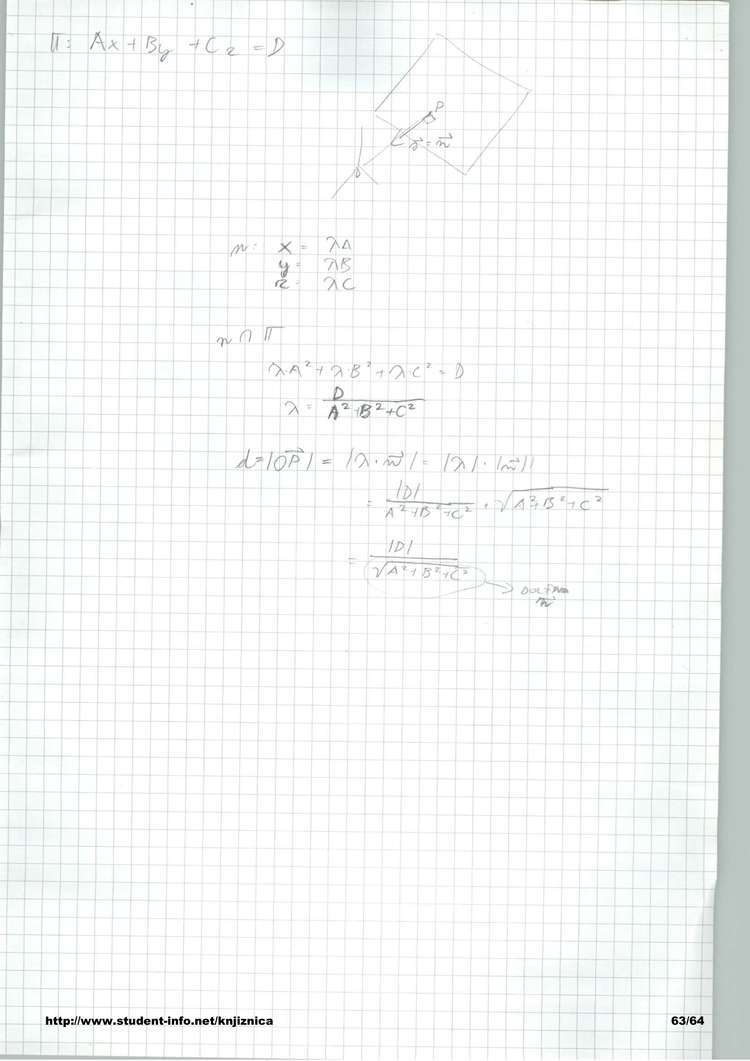 Π: Ax + By + Cz = D
P
s⃗ = n⃗
O
n: x = λA
y = λB
z = λC
n ∩ Π
λ·A² + λ·B² + λ·C² = D
λ = D / (A² + B² + C²)
d = |OP⃗| = |λ · n⃗| = |λ| · |n⃗|
= |D| / (A² + B² + C²) · √(A² + B² + C²)
= |D| / √(A² + B² + C²)
n⃗
http://www.student-info.net/knjiznica
63/64